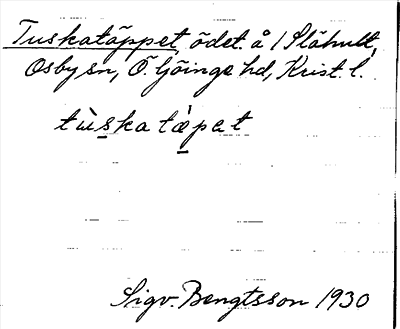 Tuskatäppet, ödet. å 1 Slähult,
Osby sn, Ö. Göinge hd, Krist. l.
tùska tæ̀pet
Sigv. Bengtsson 1930